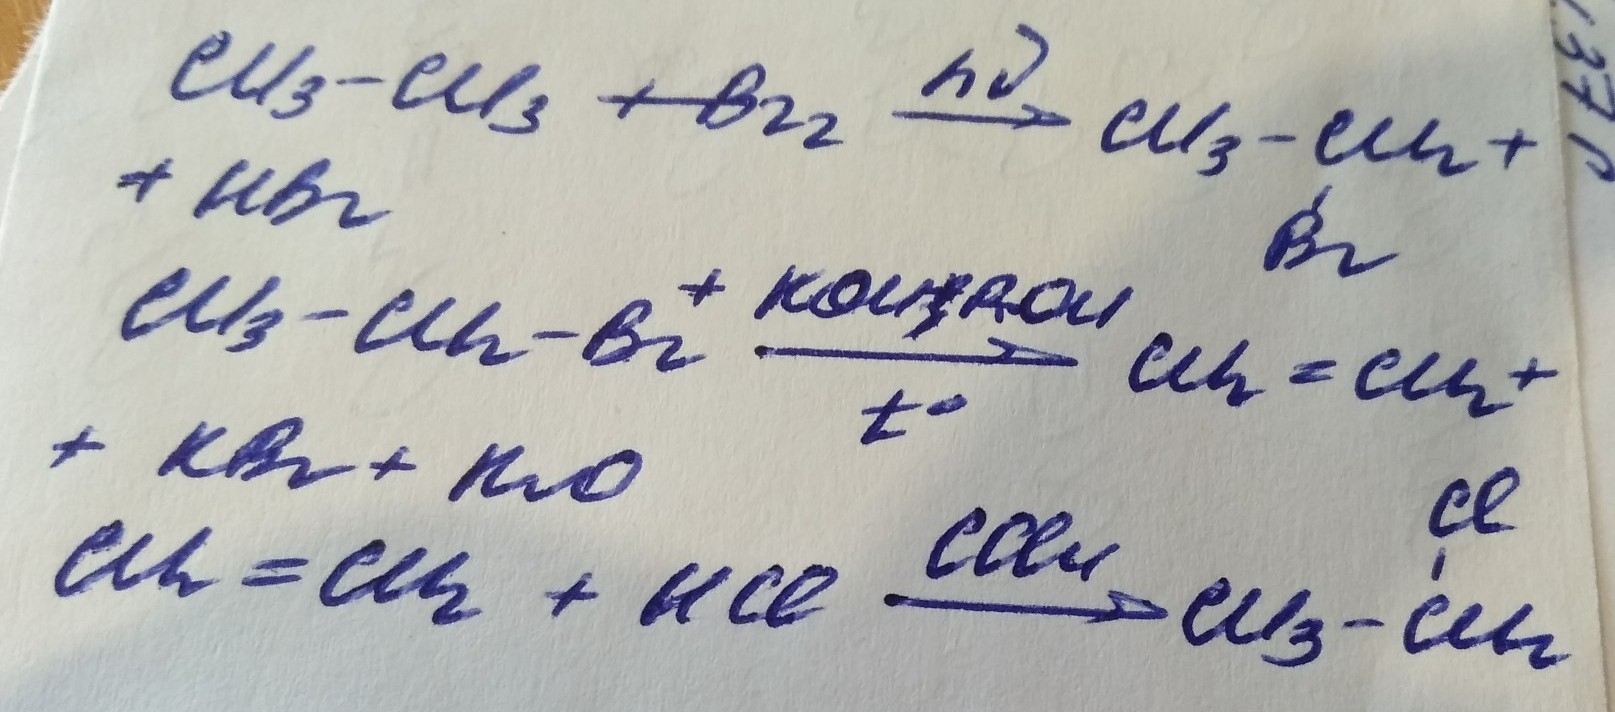 CH3-CH3 + Br2 hν → CH3-CH2 +
Br
+ HBr
CH3-CH2-Br + KOH, ROH → CH2=CH2 +
t°
+ KBr + H2O
Cl
CH2=CH2 + HCl CCl4 → CH3-CH2